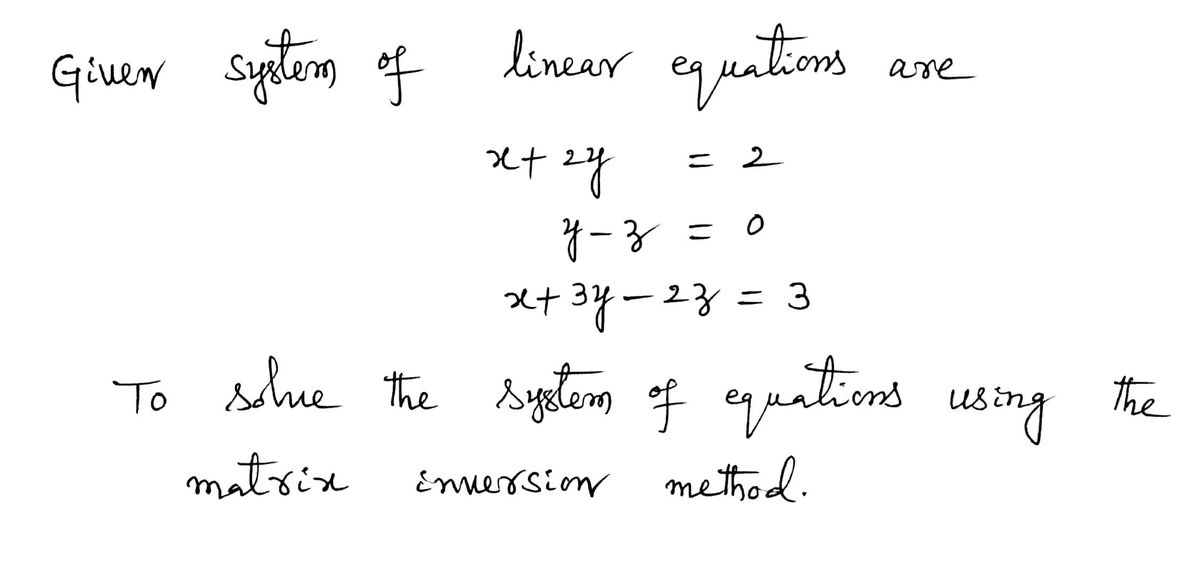 Given system of linear equations are
x + 2y = 2
y - z = 0
x + 3y - 2z = 3
To solve the system of equations using the
matrix inversion method.